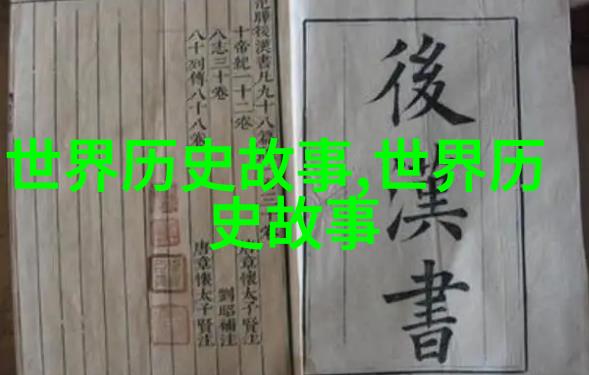 世界历史故事,世界历
史故事
後漢書
曄後漢書凡九十八
十帝紀一十二卷 唐章懷太子賢注
八志三十卷 劉昭補注
八十列傳八十八卷 唐章懷太子賢注